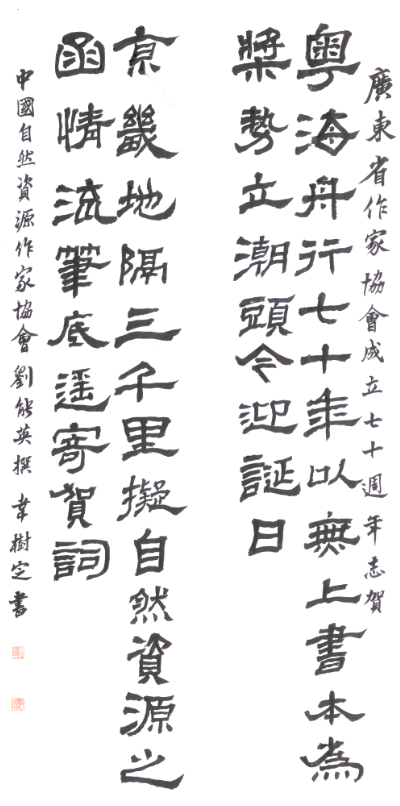 廣東省作家協會成立七十週年志賀
粵海舟行七十年以無上書本為
槳勢立潮頭今迎誕日
京畿地隔三千里擬自然資源之
函情流筆底遥寄賀詞
中國自然資源作家協會 劉能英撰 韋樹定書